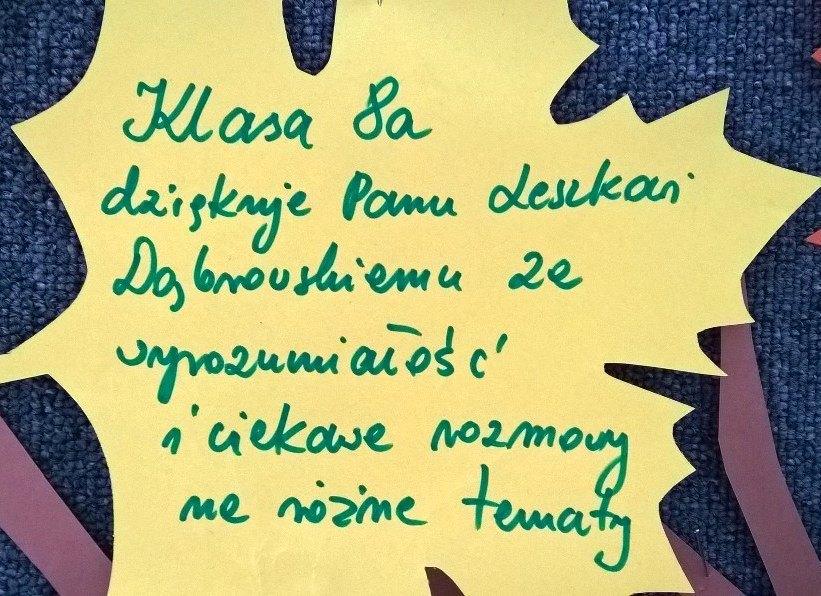 Klasa 8a
dziękuje Panu Leszkowi
Dąbrowskiemu za
wyrozumiałość
i ciekawe rozmowy
na różne tematy